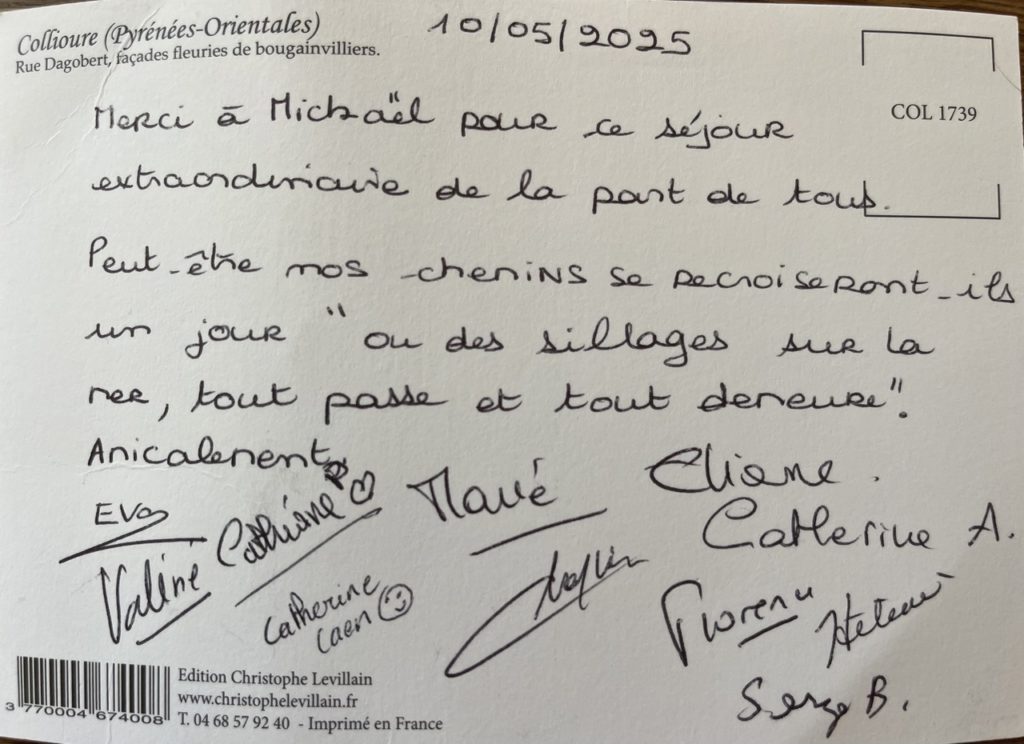 Collioure (Pyrénées-Orientales)
Rue Dagobert, façades fleuries de bougainvilliers.
10/05/2025
COL 1739
Merci à Mickaël pour ce séjour
extraordinaire de la part de tous.
Peut-être nos chemins se recroiseront-ils
un jour "ou des sillages sur la
mer, tout passe et tout demeure".
Amicalement,
EVA
Eliane.
Cathiane
Catherine A.
Catherine
Caen
Serge B.
3 770004 674008
Edition Christophe Levillain
www.christophelevillain.fr
T. 04 68 57 92 40 - Imprimé en France